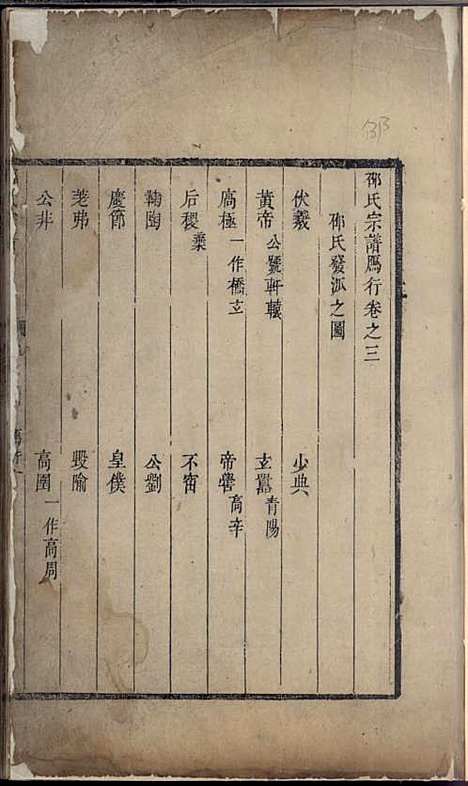 邵氏宗譜鴈行卷之三
邵氏發派之圖
伏羲 少典
黃帝 公號軒轅 玄囂 青陽
高極 一作橋玄 帝嚳 高辛
后稷 棄 不窋
鞠陶 公劉
慶節 皇僕
差弗 毀隃
公非 高圉 一作高周